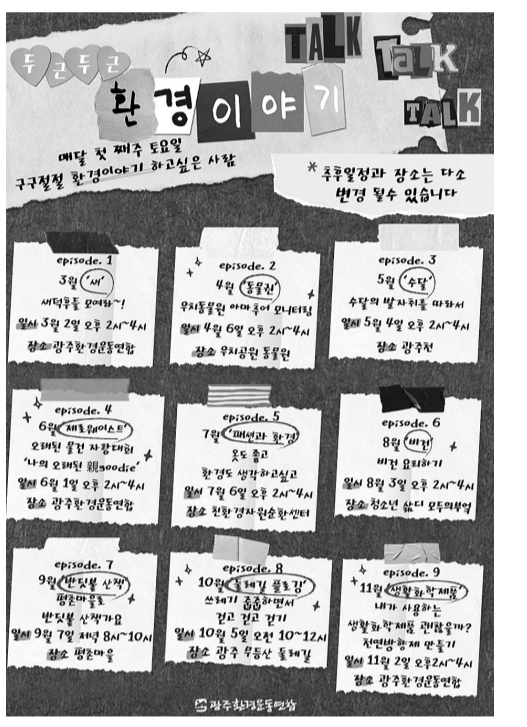 두근두근
TALK
TALK
TALK
환경이야기
매달 첫 째주 토요일
구구절절 환경이야기 하고싶은 사람
* 추후일정과 장소는 다소
변경 될수 있습니다
episode. 1
3월 '새'
새덕후들 모여라~!
일시 3월 2일 오후 2시~4시
장소 광주환경운동연합
episode. 2
4월 '동물권'
우치동물원 아마추어 모니터링
일시 4월 6일 오후 2시~4시
장소 우치공원 동물원
episode. 3
5월 '수달'
수달의 발자취를 따라서
일시 5월 4일 오후 2시~4시
장소 광주천
episode. 4
6월 '제로웨이스트'
오래된 물건 자랑대회
'나의 오래된 親goodie'
일시 6월 1일 오후 2시~4시
장소 광주환경운동연합
episode. 5
7월 '패션과 환경'
옷도 좋고
환경도 생각하고싶고
일시 7월 6일 오후 2시~4시
장소 친환경자원순환센터
episode. 6
8월 '비건'
비건 요리하기
일시 8월 3일 오후 2시~4시
장소 청소년 삶디 모두의부엌
episode. 7
9월 '반딧불 산책'
평촌마을로
반딧불 산책가요
일시 9월 7일 저녁 8시~10시
장소 평촌마을
episode. 8
10월 '둘레길 플로깅'
쓰레기 줍줍하면서
걷고 걷고 걷기
일시 10월 5일 오전 10~12시
장소 광주 무등산 둘레길
episode. 9
11월 '생활화학제품'
내가 사용하는
생활화학제품 괜찮을까?
천연방향제 만들기
일시 11월 2일 오후2시~4시
장소 광주환경운동연합
광주환경운동연합